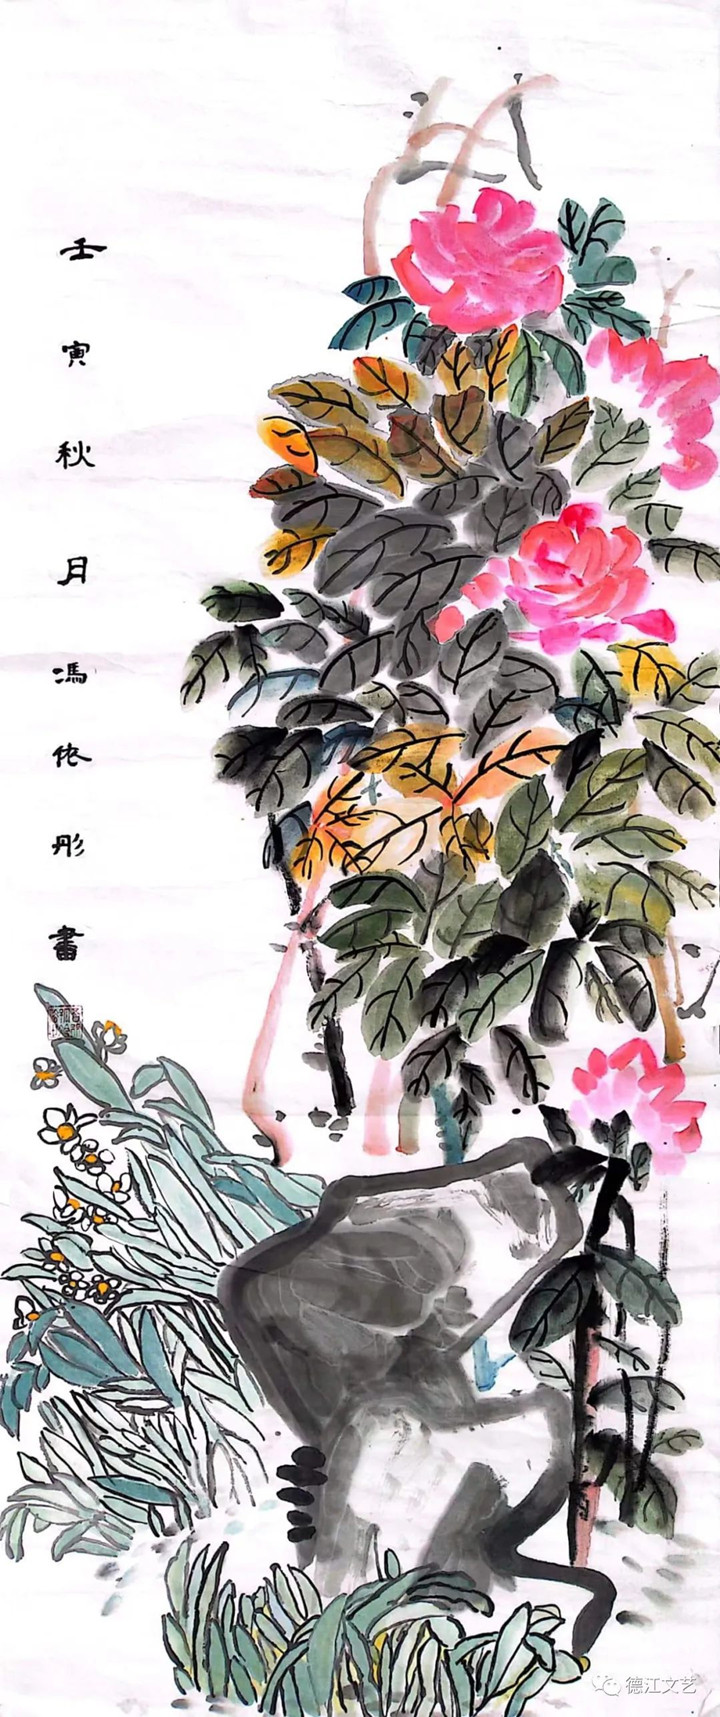 壬寅秋月馮依彤畫
德江文艺